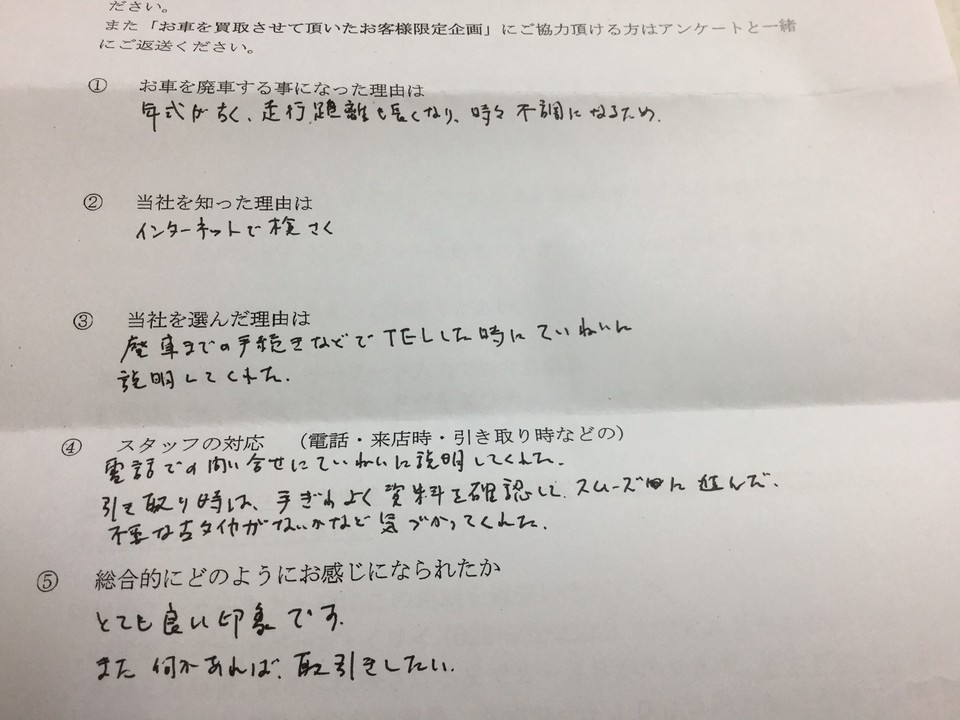 ださい。
また「お車を買取させて頂いたお客様限定企画」にご協力頂ける方はアンケートと一緒
にご返送ください。
① お車を廃車する事になった理由は
年式が古く、走行距離も長くなり、時々不調になるため.
② 当社を知った理由は
インターネットで検さく
③ 当社を選んだ理由は
廃車までの手続きなどでTELした時にていねいに
説明してくれた.
④ スタッフの対応 （電話・来店時・引き取り時などの）
電話での問い合せにていねいに説明してくれた.
引き取り時は、手ぎわよく資料を確認して、スムーズに進んだ.
不要な古タイヤがないかなど気づかってくれた.
⑤ 総合的にどのようにお感じになられたか
とても良い印象です.
また何かあれば、取引きしたい.